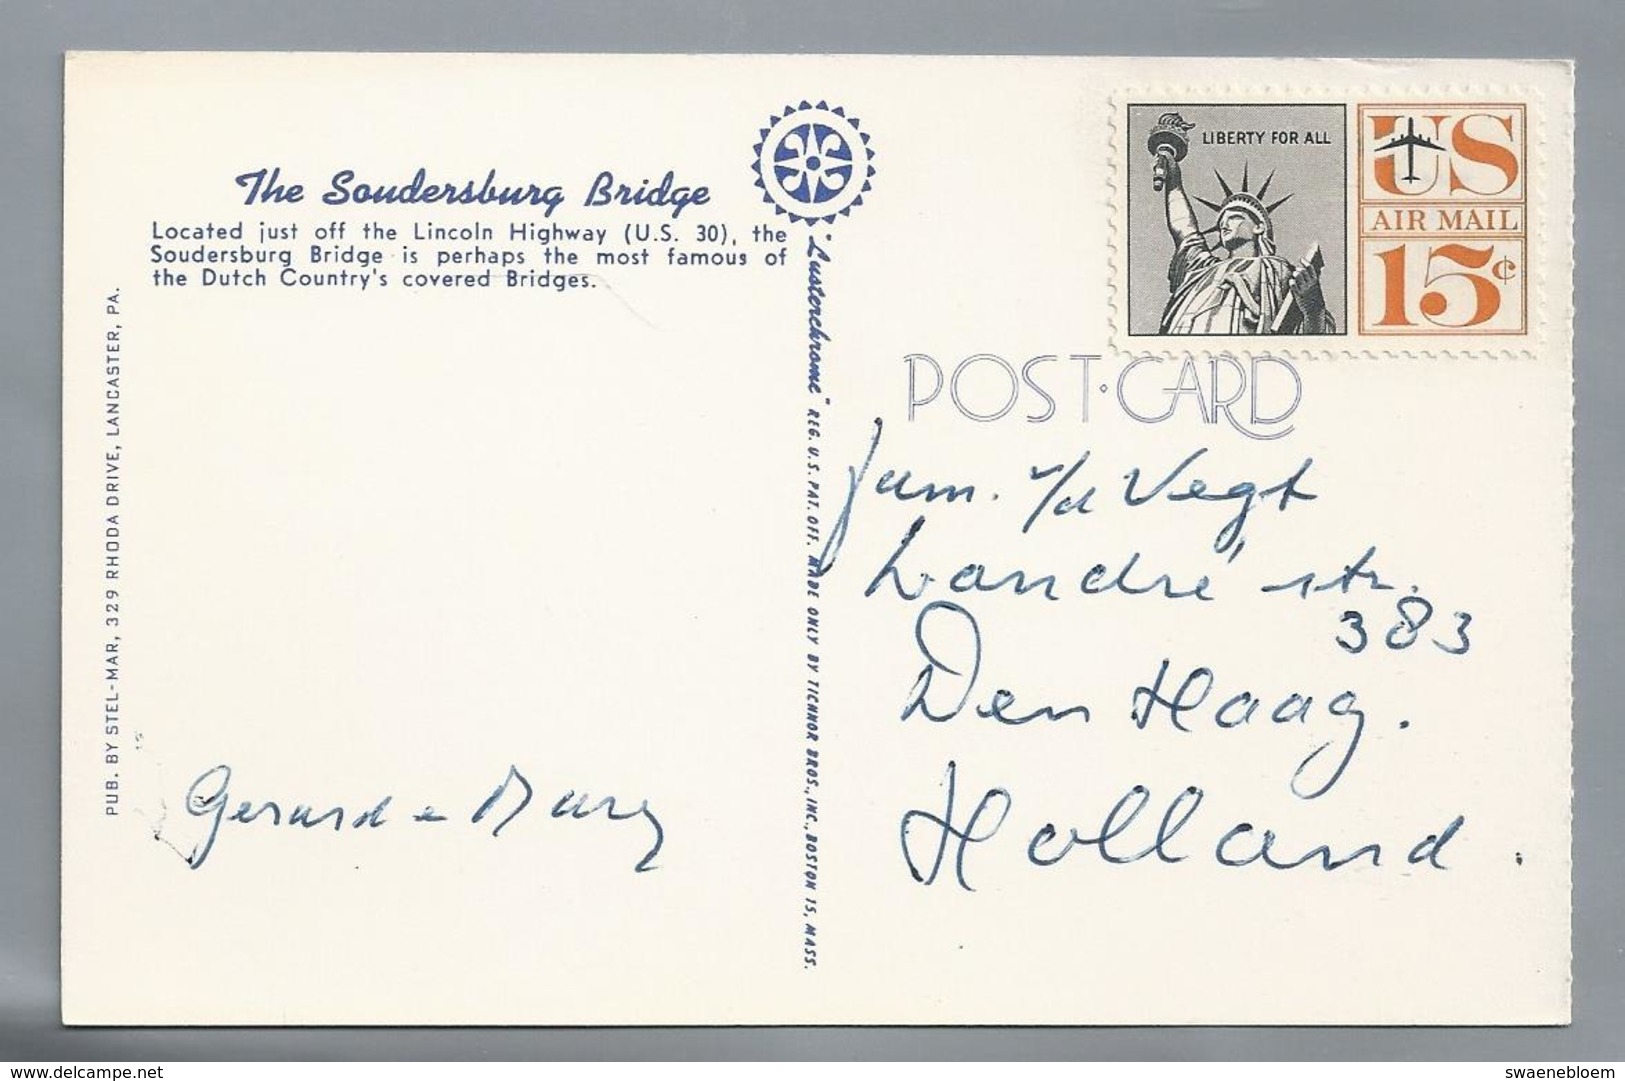 The Soudersburg Bridge
Located just off the Lincoln Highway (U.S. 30), the
Soudersburg Bridge is perhaps the most famous of
the Dutch Country's covered Bridges.
PUB. BY STEL-MAR, 329 RHODA DRIVE, LANCASTER, PA.
Gerard e Mary
"Lusterchrome" REG. U.S. PAT. OFF. MADE ONLY BY TICHNOR BROS., INC., BOSTON 15, MASS.
LIBERTY FOR ALL
US
AIR MAIL
15¢
POST·CARD
Fam. v/d Vegt
Landré str.
383
Den Haag.
Holland.
www.delcampe.net
swaenebloem